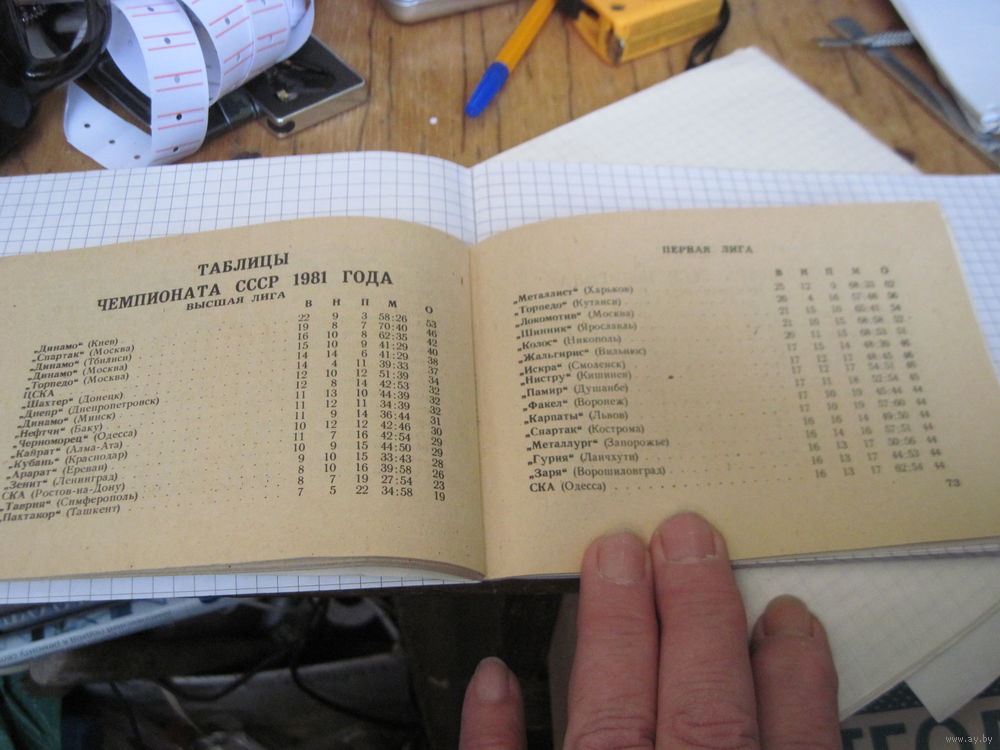 ТАБЛИЦЫ
ЧЕМПИОНАТА СССР 1981 ГОДА
ВЫСШАЯ ЛИГА
В Н П М О
„Динамо“ (Киев) 22 9 3 58:26 53
„Спартак“ (Москва) 19 8 7 70:40 46
„Динамо“ (Тбилиси) 16 10 8 62:35 42
„Динамо“ (Москва) 15 10 9 41:29 40
„Торпедо“ (Москва) 14 14 6 41:29 38
ЦСКА 14 4 11 39:33 37
„Шахтер“ (Донецк) 12 10 12 51:39 34
„Днепр“ (Днепропетровск) 12 8 14 42:53 32
„Динамо“ (Минск) 11 13 10 44:39 32
„Нефтчи“ (Баку) 11 12 11 34:39 32
„Черноморец“ (Одесса) 11 9 14 36:44 31
„Кайрат“ (Алма-Ата) 10 12 12 42:46 30
„Кубань“ (Краснодар) 11 7 16 42:54 29
„Арарат“ (Ереван) 10 9 15 44:50 29
„Зенит“ (Ленинград) 9 10 15 33:43 28
СКА (Ростов-на-Дону) 8 10 16 39:58 26
„Таврия“ (Симферополь) 8 7 19 27:54 23
„Пахтакор“ (Ташкент) 7 5 22 34:58 19
ПЕРВАЯ ЛИГА
В Н П М О
„Металлист“ (Харьков) 25 12 9 62
„Торпедо“ (Кутаиси) 26 4 16 57:46 56
„Локомотив“ (Москва) 21 15 10 54
„Шинник“ (Ярославль) 21 10 15 52
„Колос“ (Никополь) 20 11 15 68:53 51
„Жальгирис“ (Вильнюс) 17 15 14 48:39 46
„Искра“ (Смоленск) 17 12 17 48:45 46
„Нистру“ (Кишинев) 17 12 17 54:51 46
„Памир“ (Душанбе) 17 11 18 52:54 45
„Факел“ (Воронеж) 17 10 19 45:44 44
„Карпаты“ (Львов) 17 10 19 57:60 44
„Спартак“ (Кострома) 16 16 14 49:50 44
„Металлург“ (Запорожье) 16 14 16 57:51 44
„Гурия“ (Ланчхути) 16 13 17 50:56 44
„Заря“ (Ворошиловград) 16 13 17 44:53 44
СКА (Одесса) 16 13 17 62:54 44
73
www.ay.by